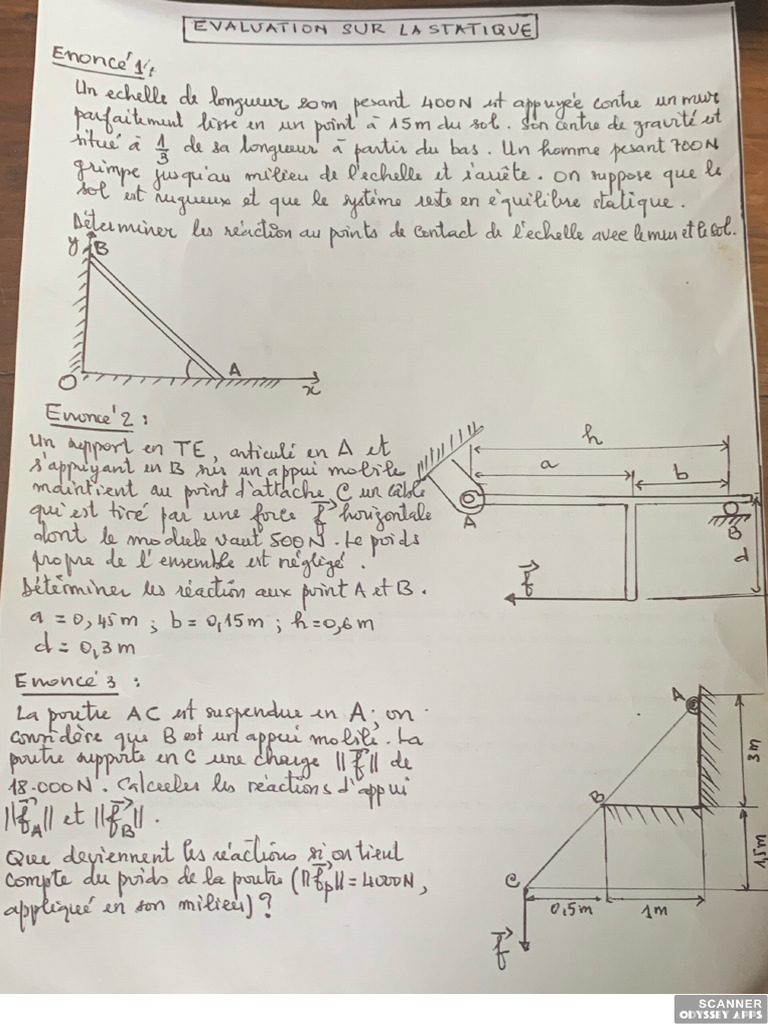 EVALUATION SUR LA STATIQUE
Enoncé 1:
Un echelle de longueur 20m pesant 400N est appuyée contre un mur
parfaitement lisse en un point à 15m du sol. Son centre de gravité est
situé à 1/3 de sa longueur à partir du bas. Un homme pesant 700N
grimpe jusqu'au milieu de l'echelle et s'arrête. On suppose que le
sol est rugueux et que le système reste en équilibre statique.
Déterminer les réaction au points de contact de l'echelle avec le mur et le sol.
y
B
O
A
x
Enoncé 2:
Un support en TE, articulé en A et
s'appuyant en B sur un appui mobile
maintient au point d'attache C un câble
qu'est tiré par une force f horizontale
dont le module vaut 500N. Le poids
propre de l'ensemble est négligé.
Déterminer les réaction aux point A et B.
a = 0,45m ; b = 0,15m ; h = 0,6m
d = 0,3m
h
a
b
A
B
d
f
Enoncé 3 :
La poutre AC est suspendue en A; on
considère que B est un appui mobile. La
poutre supporte en C une charge ||f|| de
18.000N. Calculer les réactions d'appui
||fA|| et ||fB||.
Que deviennent les réactions si on tient
compte du poids de la poutre (||fp|| = 4000N,
appliqué en son milieu) ?
A
3m
B
1,5m
C
0,5m
1m
f
SCANNER
ODYSSEY APPS